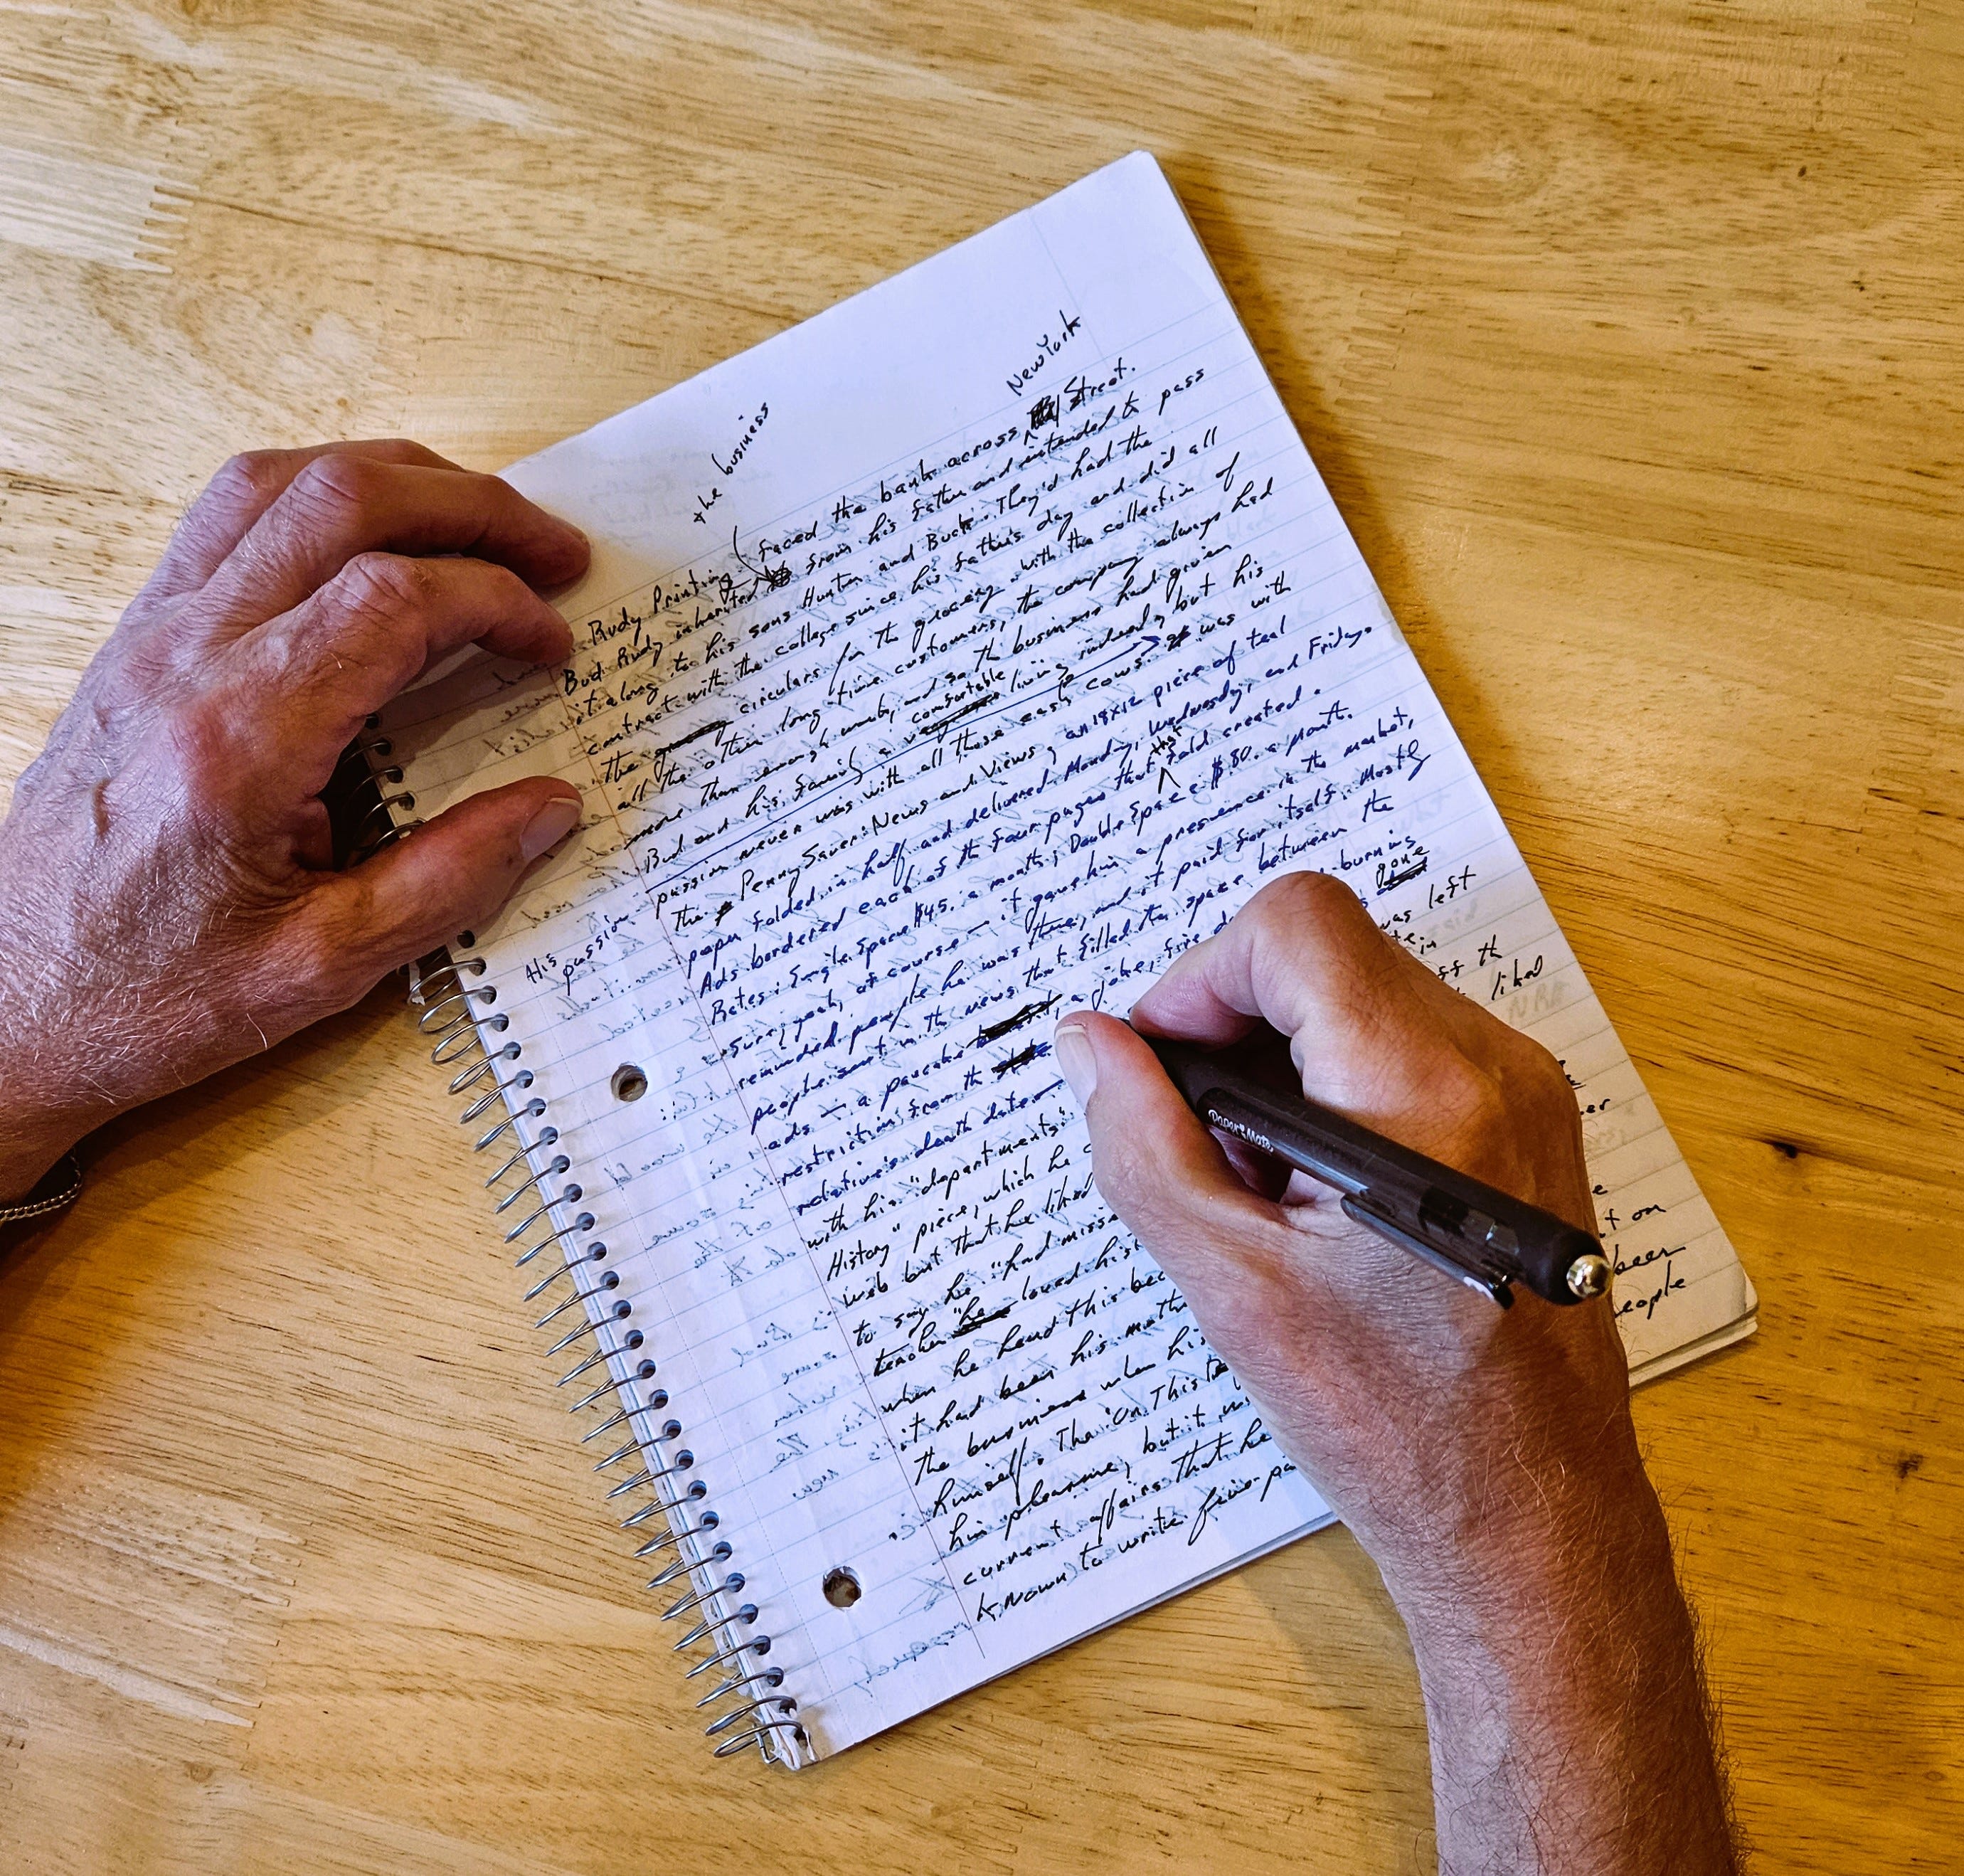 New York
the business
Rudy Printing faced the bank across Street.
Bud Rudy inherited from his father and intended to pass
it along to his sons Hunter and Buck. They'd had the
contract with the college since his father's day and did all
the circulars for the grocery. with the collection of
all the other long time customers, the company always had
more than enough work, and so the business had given
Bud and his family a comfortable living indeed, but his
passion never was with all those cash cows. was with
His passion
The PennySaver: News and Views, an 18x12 piece of teal
paper folded in half, and delivered Monday, Wednesday, and Friday.
Ads bordered each of the four pages that that fold created.
Rates: Single Space $45. a month; Double Space: $80. a month.
Sure, yeah, of course — it gave him a presence in the market,
reminded people he was there, and it paid for itself. Mostly
people sent in the news that filled the space between the
ads — a pancake a joke, fire burning
restriction from the gone
relative's death date was left
with his "departments:" off the
History" piece, which he liked
web but that he liked
to say he "had misse
teacher "he loved hist
when he heard this bec
it had been his moth on
the business when his been
himself. The "On This people
him pleasure, but it
current affairs that he
known to write five
Paper Mate